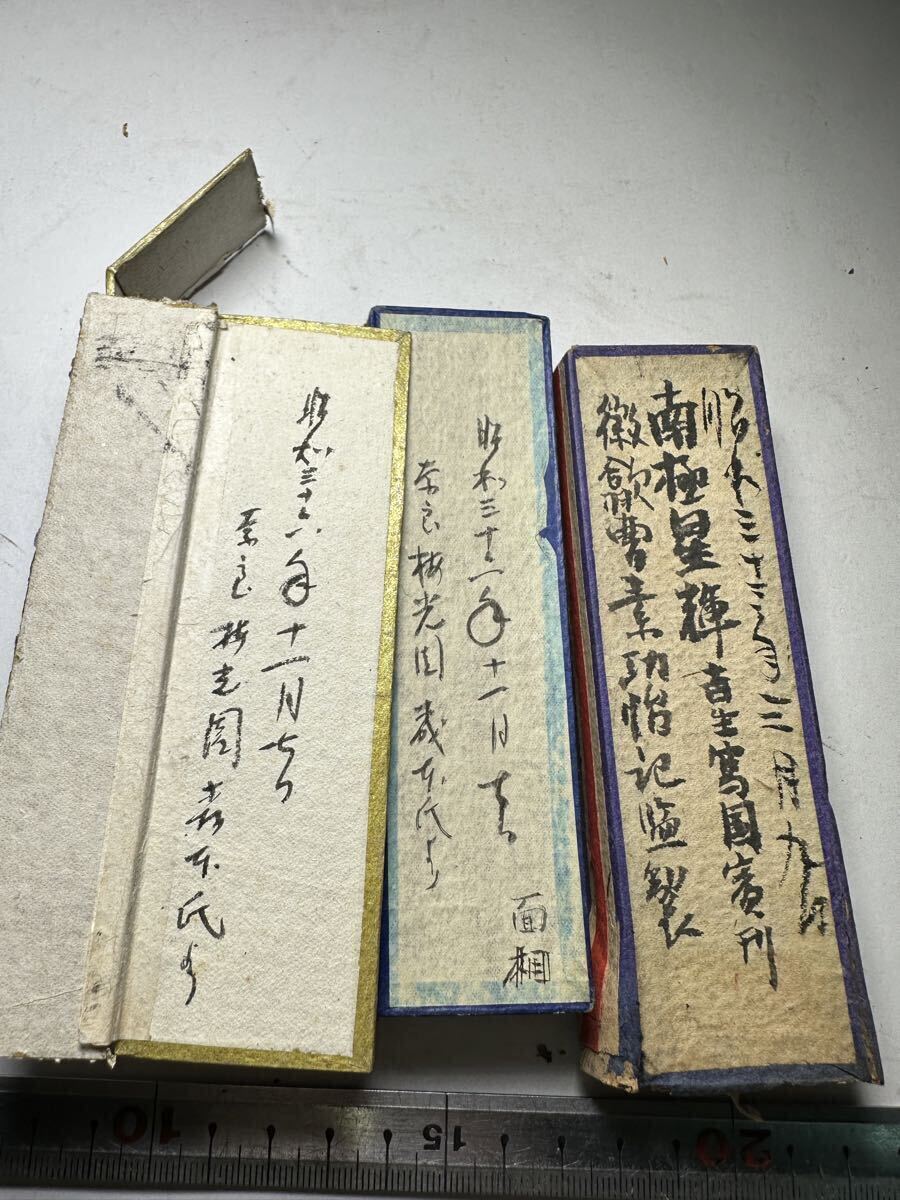 昭和三十六年十一月七日
奈良 梅光園 岩本氏より
昭和三十二年十一月
奈良梅光園 氏より
面相
昭和三十三年三月九日
南極星輝 吉生寫国賓刊
徽歙曹素功怡記監製
10
15
20